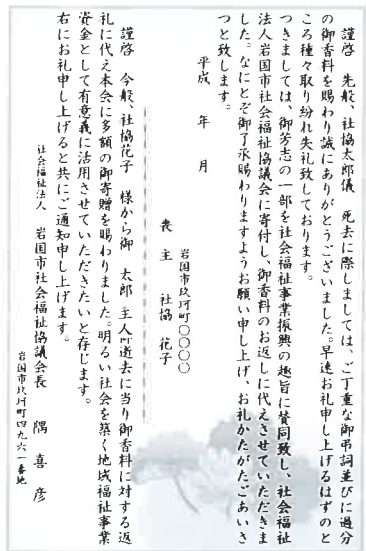 謹啓　先般、社協太郎儀　死去に際しましては、ご丁重な御弔詞並びに過分
の御香料を賜わり誠にありがとうございました。早速お礼申し上げるはずのと
ころ種々取り紛れ失礼致しております。
つきましては、御芳志の一部を社会福祉事業振興の趣旨に賛同致し、社会福祉
法人岩国市社会福祉協議会に寄付し、御香料のお返しに代えさせていただきま
した。なにとぞ御了承賜わりますようお願い申し上げ、お礼かたがたごあいさ
つと致します。
平成　年　月
岩国市玖珂町〇〇〇〇
喪主　社協　花子
謹啓　今般、社協花子　様から御　太郎　主人　逝去に当り御香料に対する返
礼に代え本会に多額の御寄贈を賜わりました。明るい社会を築く地域福祉事業
資金として有意義に活用させていただきたいと存じます。
右にお礼申し上げると共にご通知申し上げます。
社会福祉法人　岩国市社会福祉協議会長　隅　喜　彦
岩国市玖珂町四九六一番地